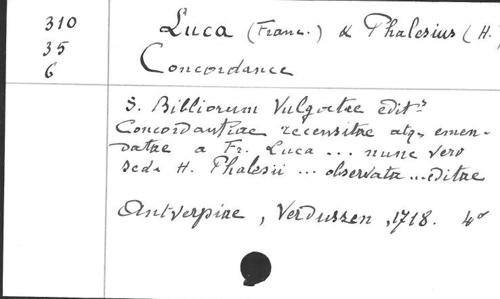 310 Luca (Franc.) & Phalesius (H.
35 Concordance
6
S. Bibliorum Vulgatae edit.s
Concordantiae recensitae atq, emen-
datae a Fr. Luca ... nunc vero
seda H. Phalesii ... observata ... editae
Antverpiae, Verdussen, 1718. 4o